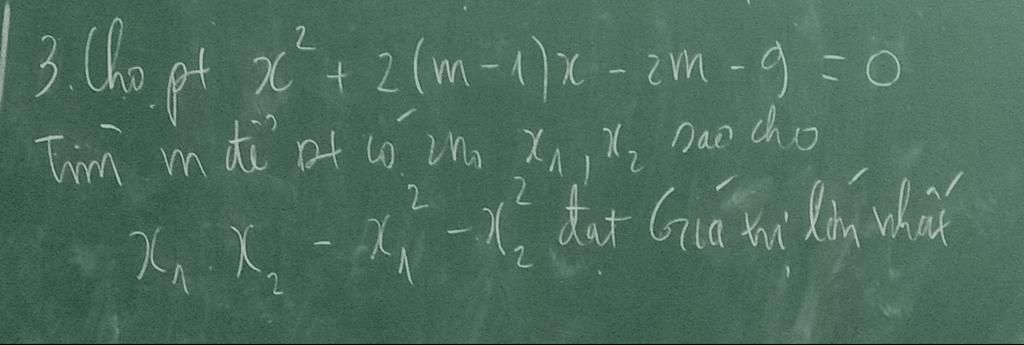 3. Cho pt x² + 2(m - 1)x - 2m - 9 = 0
Tìm m để pt có 2n₀ x₁, x₂ sao cho
x₁ . x₂ - x₁² - x₂² đạt Giá trị lớn nhất